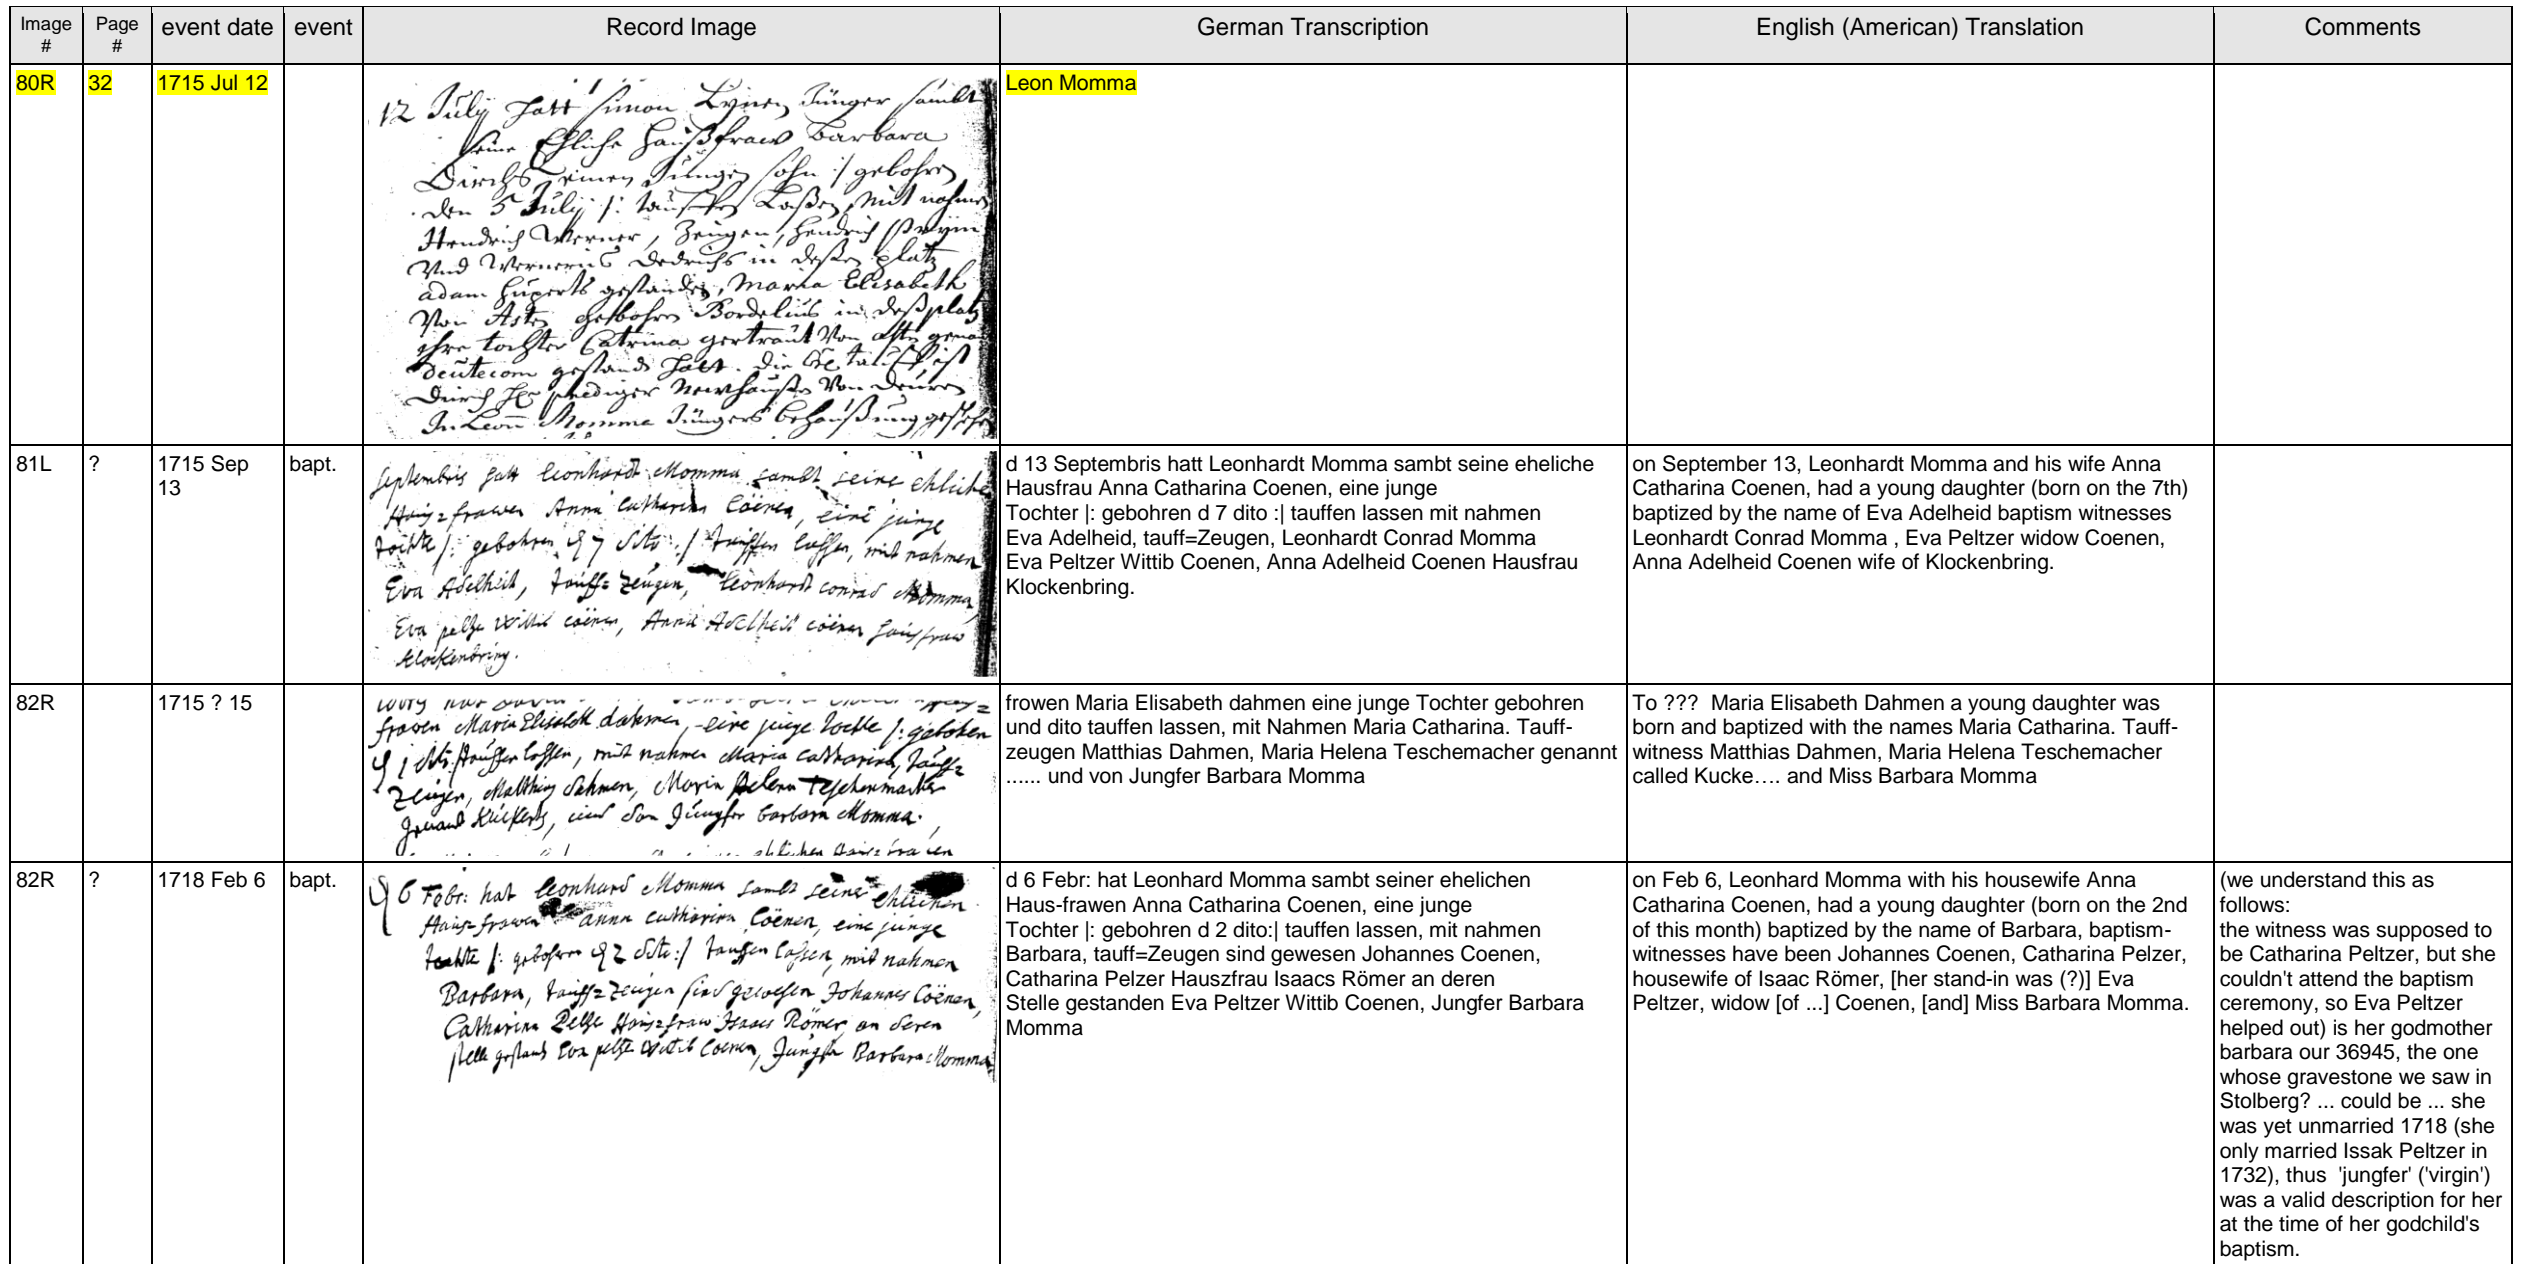 Image # Page # event date event Record Image German Transcription English (American) Translation Comments
80R 32 1715 Jul 12
12 July hatt simon Lynen Jünger sambt
seine Ehliche Haußfraw Barbara
Dirchs einen Jungen sohn :/ gebohren
den 5 July /: tauffen Laßen, mit nahmen
Hendrich Werner, Zeugen, Hendrich Prym
Und Wernerus Dedrichs in deßen platz
adam Huperts gestanden, Maria Elisabeth
Von Asten gebohren Bordelius in deß platz
ihre tochter Catrina gertraut Von
gestand hatt. die tauff ist
Durch prediger Newhauß Von Deuren
In Leon Momma Jüngers behaußung
Leon Momma
81L ? 1715 Sep 13 bapt.
Septembris hatt Leonhardt Momma sambt seine ehliche
Hauß=frawen Anna Catharina Cöenen, eine junge
tochter /: gebohren d 7 dito :/ tauffen lassen, mit nahmen
Eva Adelheit, tauff=Zeugen, Leonhardt conrad Momma
Eva peltzer Wittib cöenen, Anna Adelheid cöenen haußfraw
Klockenbring.
d 13 Septembris hatt Leonhardt Momma sambt seine eheliche
Hausfrau Anna Catharina Coenen, eine junge
Tochter |: gebohren d 7 dito :| tauffen lassen mit nahmen
Eva Adelheid, tauff=Zeugen, Leonhardt Conrad Momma
Eva Peltzer Wittib Coenen, Anna Adelheid Coenen Hausfrau
Klockenbring.
on September 13, Leonhardt Momma and his wife Anna
Catharina Coenen, had a young daughter (born on the 7th)
baptized by the name of Eva Adelheid baptism witnesses
Leonhardt Conrad Momma , Eva Peltzer widow Coenen,
Anna Adelheid Coenen wife of Klockenbring.
82R 1715 ? 15
frawen Maria Elisabeth dahmen, eine junge tochter /: gebohren
d 1 dito tauffen lassen, mit nahmen Maria Catharina, tauff=
zeugen, Matthias dahmen, Maria Helena Teschenmacher
genant, und von Jungfer barbara Momma.
frowen Maria Elisabeth dahmen eine junge Tochter gebohren
und dito tauffen lassen, mit Nahmen Maria Catharina. Tauff-
zeugen Matthias Dahmen, Maria Helena Teschemacher genannt
...... und von Jungfer Barbara Momma
To ??? Maria Elisabeth Dahmen a young daughter was
born and baptized with the names Maria Catharina. Tauff-
witness Matthias Dahmen, Maria Helena Teschemacher
called Kucke…. and Miss Barbara Momma
82R ? 1718 Feb 6 bapt.
d 6 Febr: hat Leonhard Momma sambt seine ehlichen
Hauß=frawen anna catharina Cöenen, eine junge
tochte /: gebohren d 2 dito :/ tauffen lassen, mit nahmen
Barbara, tauff=zeugen sind gewesen Johannes Cöenen,
Catharina Peltzer Hauß=fraw Isaacs Römer, an deren
stelle gestand Eva peltzer Wittib Coenen, Jungfer Barbara Momma
d 6 Febr: hat Leonhard Momma sambt seiner ehelichen
Haus-frawen Anna Catharina Coenen, eine junge
Tochter |: gebohren d 2 dito:| tauffen lassen, mit nahmen
Barbara, tauff=Zeugen sind gewesen Johannes Coenen,
Catharina Pelzer Hauszfrau Isaacs Römer an deren
Stelle gestanden Eva Peltzer Wittib Coenen, Jungfer Barbara
Momma
on Feb 6, Leonhard Momma with his housewife Anna
Catharina Coenen, had a young daughter (born on the 2nd
of this month) baptized by the name of Barbara, baptism-
witnesses have been Johannes Coenen, Catharina Pelzer,
housewife of Isaac Römer, [her stand-in was (?)] Eva
Peltzer, widow [of ...] Coenen, [and] Miss Barbara Momma.
(we understand this as
follows:
the witness was supposed to
be Catharina Peltzer, but she
couldn't attend the baptism
ceremony, so Eva Peltzer
helped out) is her godmother
barbara our 36945, the one
whose gravestone we saw in
Stolberg? ... could be ... she
was yet unmarried 1718 (she
only married Issak Peltzer in
1732), thus 'jungfer' ('virgin')
was a valid description for her
at the time of her godchild's
baptism.